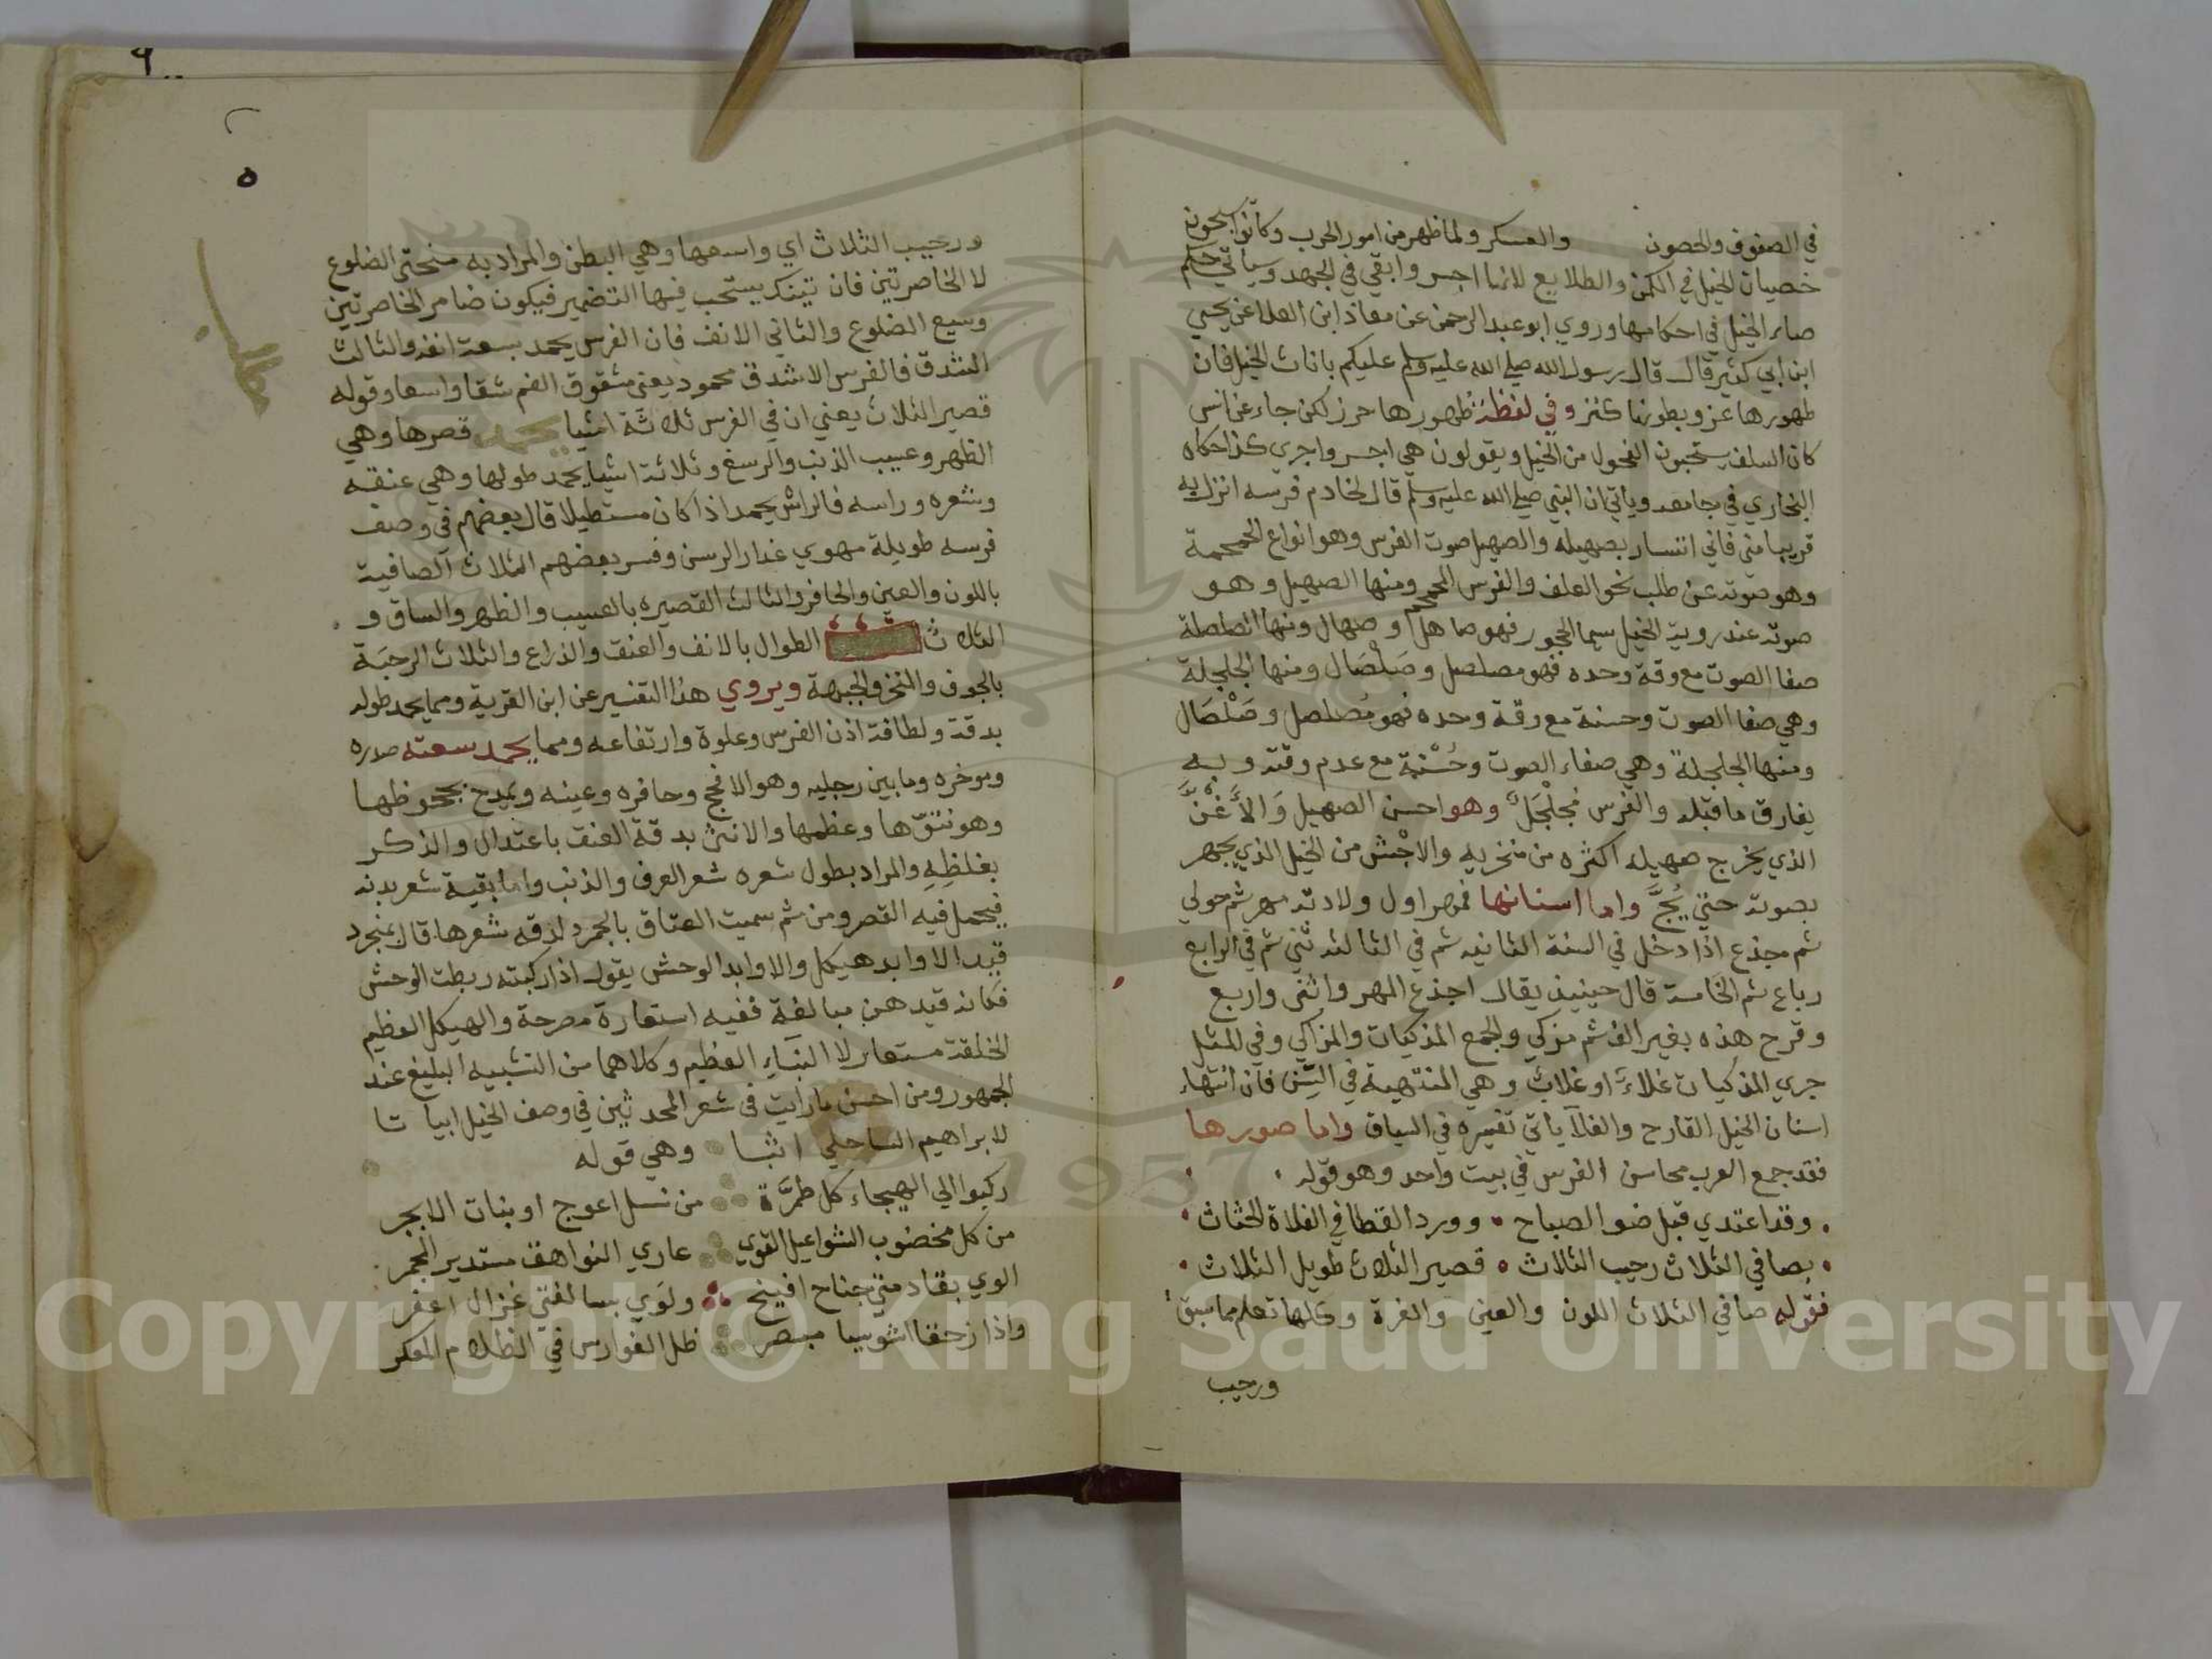 في الصفوف والحصون والعسكر ولما ظهر من امور الحرب وكانوا يستحبون
خصيان الخيل في الكمن والطلايع لانها اجسر وابقي في الجهد وسياتي حكم
صاء الخيل في احكامها وروي ابو عبد الرحمن عن معاذ ابن العلا عن يحيي
ابن ابي كثير قال قال رسول الله صلي الله عليه وسلم عليكم باناث الخيل فان
ظهورها عز وبطونها كنز وفي لفظة ظهورها حرز لكن جاء عن انس
كان السلف يستحبون الفحول من الخيل ويقولون هي اجسر واجري كذا حكاه
البخاري في جامعه وياتي ان النبي صلي الله عليه وسلم قال لخادم فرسه انزل به
قريبا مني فاني اتسار بصهيله والصهيل صوت الفرس وهو انواع الحمحمة
وهو صوته عن طلب نحو العلف والفرس المحمحم ومنها الصهيل وهو
صوته عند روية الخيل سيما الحجور فهو صاهل وصهال ومنها الصلصلة
صفا الصوت مع وقة وحده فهو مصلصل وصلصال ومنها الجلجلة
وهي صفا الصوت وحسنة مع رقة وحده فهو مصلصل وصلصال
ومنها الجلجلة وهي صفاء الصوت وحسنة مع عدم رقته وبه
يفارق ما قبله والفرس مجلجل وهو احسن الصهيل والاغن
الذي يخرج صهيله اكثره من منخريه والاجش من الخيل الذي يجهر
بصوته حتي يُجّ واما اسنانها فمهر اول ولادته مهر ثم حولي
ثم مجذع اذا دخل في السنة الثانيه ثم في الثالثه ثني ثم في الرابع
رباع ثم الخامسة قال حينيذ يقال اجذع المهر واثنى واربع
وقرح هذه بغير الف ثم مزكي والجمع المذكيات والمزاكي وفي المثل
جري المذكيات غلاء او غلاب وهي المنتهية في السن فان انتهاء
اسنان الخيل القارح والغلا ياتي تفسيره في السياق واما صورها
فقد جمع العرب محاسن الفرس في بيت واحد وهو قوله
وقد اعتدي قبل ضو الصباح وورد القطا في الفلاة الحثاث
بصافي الثلاث رحيب الثلاث قصير الثلاث طويل الثلاث
فقوله صافي الثلاث اللون والعين والغرة وكلها تعلم مما سبق
ورحيب
٥
مطلب
ورحيب الثلاث اي واسعها وهي البطن والمراد به منحتى الضلوع
لا الخاصرتين فان تينك يستحب فيها التضمير فيكون ضامر الخاصرتين
وسيع الضلوع والثاني الانف فان الفرس يحمد بسعة انفه والثالث
الشدق فالفرس الاشدق محمود يعني مشقوق الفم شقا واسعا وقوله
قصير الثلاث يعني ان في الفرس ثلاثة اشيا يحمد قصرها وهي
الظهر وعسيب الذنب والرسغ وثلاثة اشيا يحمد طولها وهي عنقه
وشعره وراسه فالراس يحمد اذا كان مستطيلا قال بعضهم في وصف
فرسه طويلة مهوي عذار الرسن وفسر بعضهم الثلاث الصافية
باللون والعين والحافر والثالث القصيره بالعسيب والظهر والساق و
الثلاث الطوال بالانف والعنق والذراع والثلاث الرحبة
بالجوف والنخر والجبهة ويروي هذا التفسير عن ابن القرية ومما يحمد طوله
بدقة ولطافة اذن الفرس وعلوة وارتفاعه ومما يحمد سعته صدره
وموخره وما بين رجليه وهو الافحج وحافره وعينه ويمدح بجحوظها
وهو نتؤها وعظمها والانثى بدقة العنق باعتدال والذكر
بغلظه والمراد بطول شعره شعر العرف والذنب واما بقية شعر بدنه
فيحمل فيه القصر ومن ثم سميت العتاق بالجرد لدقه شعرها قال بمنجرد
قيد الاوابد هيكل والاوابد الوحش يقول اذا ركبته ربطت الوحش
فكانه قيدهن مبالغة ففيه استعارة مصرحة والهيكل العظيم
الخلقة مستعار لا البناء العظيم وكلاهما من التشبيه البليغ عند
الجمهور ومن احسن ما رايت في شعر المحدثين في وصف الخيل ابياتا
لابراهيم الساحلي وهي قوله
ركبوا الي الهيجاء كل طمرّة من نسل اعوج او بنات الابجر
من كل مخضوب الشوا عبل القوي عاري النواهق مستدير المحجر
الوي بقادمتي جناح افيخ ولوي بسالفتي غزال اعفر
واذا زحقا اشوسيا مبصر ظل الفوارس في الظلام المعكر
Copyright © King Saud University
1957